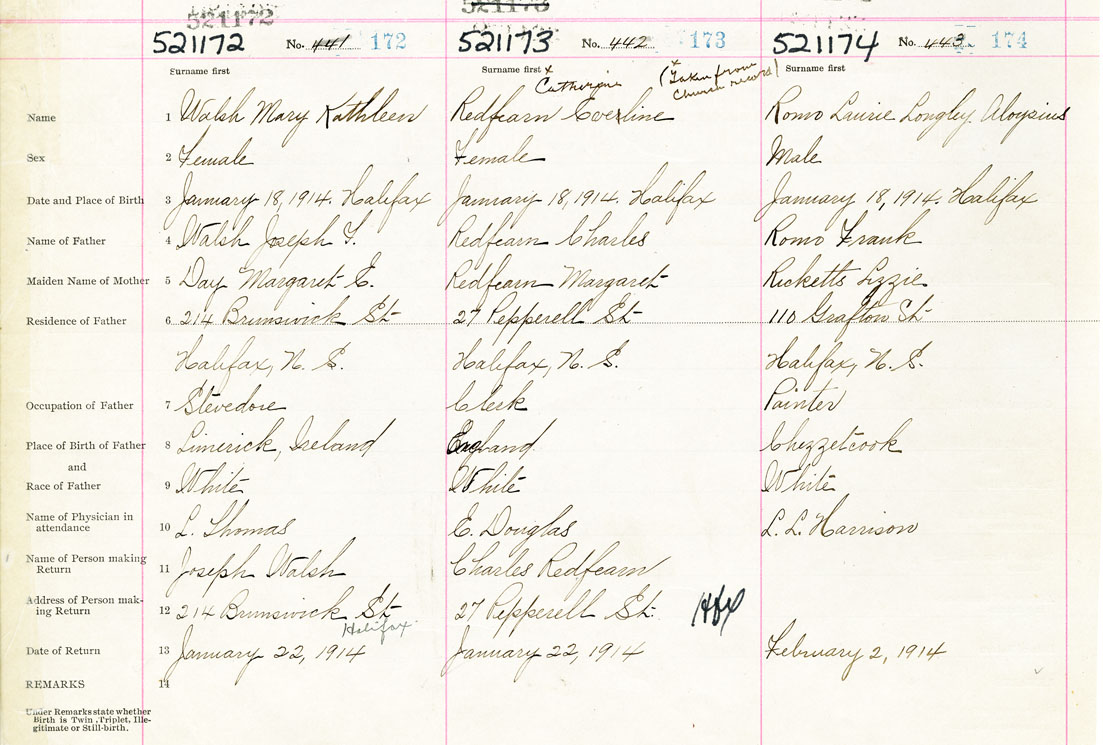 521172 521173
521172 No. 441 172 521173 No. 442 173 521174 No. 443 174
Surname first Surname first x Surname first
Catherine (Taken from church record)
Name 1 Walsh Mary Kathleen Redfearn Everline Romo Laurie Longley Aloysius
Sex 2 Female Female Male
Date and Place of Birth 3 January 18, 1914. Halifax January 18, 1914. Halifax January 18, 1914. Halifax
Name of Father 4 Walsh Joseph T. Redfearn Charles Romo Frank
Maiden Name of Mother 5 Day Margaret E. Redfearn Margaret Ricketts Lizzie
Residence of Father 6 214 Brunswick St 27 Pepperell St 110 Grafton St
Halifax, N. S. Halifax, N. S. Halifax, N. S.
Occupation of Father 7 Stevedore Clerk Painter
Place of Birth of Father 8 Limerick, Ireland England Chezzetcook
and
Race of Father 9 White White White
Name of Physician in attendance 10 L. Thomas E. Douglas L. L. Harrison
Name of Person making Return 11 Joseph Walsh Charles Redfearn
Address of Person mak-ing Return 12 214 Brunswick St 27 Pepperell St. Hfx
Halifax
Date of Return 13 January 22, 1914 January 22, 1914 February 2, 1914
REMARKS 14
Under Remarks state whether
Birth is Twin, Triplet, Ille-
gitimate or Still-birth.